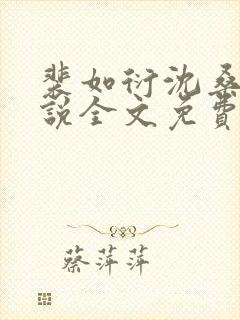 裴如衍沈桑
说全文免费
蔡萍萍